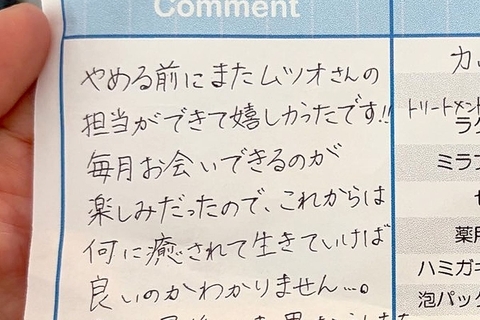 Comment
やめる前にまたムツオさんの
担当ができて嬉しかったです!!
毎月お会いできるのが
楽しみだったので、これからは
何に癒されて生きていけば
良いのかわかりません…。
カ
トリートメント
ラク
ミラブ
薬用
ハミガキ
泡パック